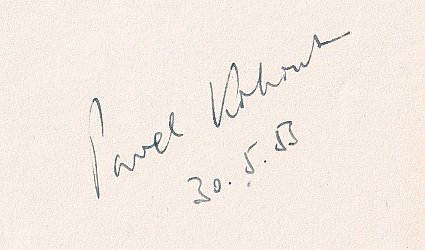 Pavel Kohout
30.5.83